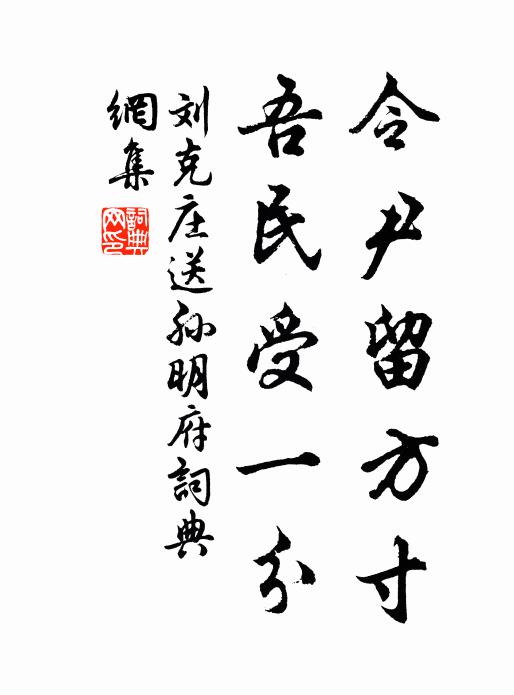 令尹留方寸
吾民受一分
刘克庄送孙明府詞典
網集
詞典
网印